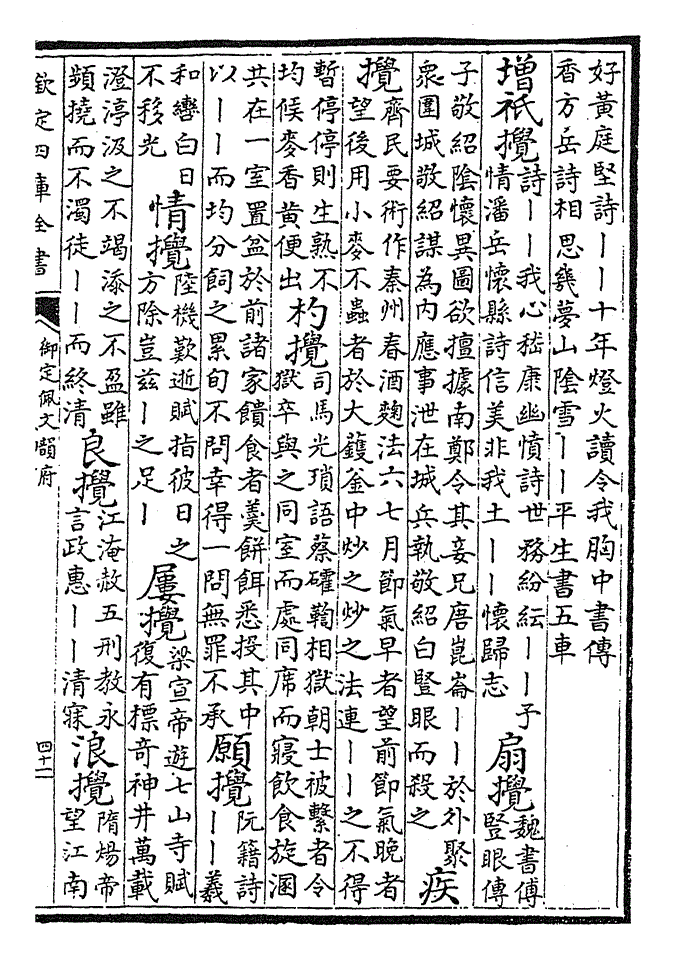 好黃庭堅詩丨丨十年燈火讀令我胸中書傳
香方岳詩相思幾夢山陰雪丨丨平生書五車
增祇攪
詩丨丨我心嵇康幽憤詩世務紛紜丨丨子
情潘岳懷縣詩信美非我土丨丨懷歸志
扇攪
魏書傅
豎眼傳
子敬紹陰懷異圖欲擅據南鄭令其妾兄唐崑崙丨丨於外聚
衆圍城敬紹謀為内應事泄在城兵執敬紹白豎眼而殺之
疾
攪
齊民要術作秦州春酒麴法六七月節氣早者望前節氣晚者
望後用小麥不蟲者於大鑊釜中炒之炒之法連丨丨之不得
暫停停則生熟不
均候麥香黃便出
杓攪
司馬光瑣語蔡確鞫相獄朝士被繫者令
獄卒與之同室而處同席而寢飲食旋溷
共在一室置盆於前諸家饋食者羹餅餌悉投其中
以丨丨而均分飼之累旬不問幸得一問無罪不承
願攪
阮籍詩
丨丨羲
和轡白日
不移光
情攪
陸機歎逝賦指彼日之
方除豈兹丨之足丨
屢攪
梁宣帝遊七山寺賦
復有標奇神井萬載
澄渟汲之不竭添之不盈雖
頻撓而不濁徒丨丨而終清
良攪
江淹赦五刑教永
言政惠丨丨清寐
浪攪
隋煬帝
望江南
欽定四庫全書
御定佩文韻府
四十二